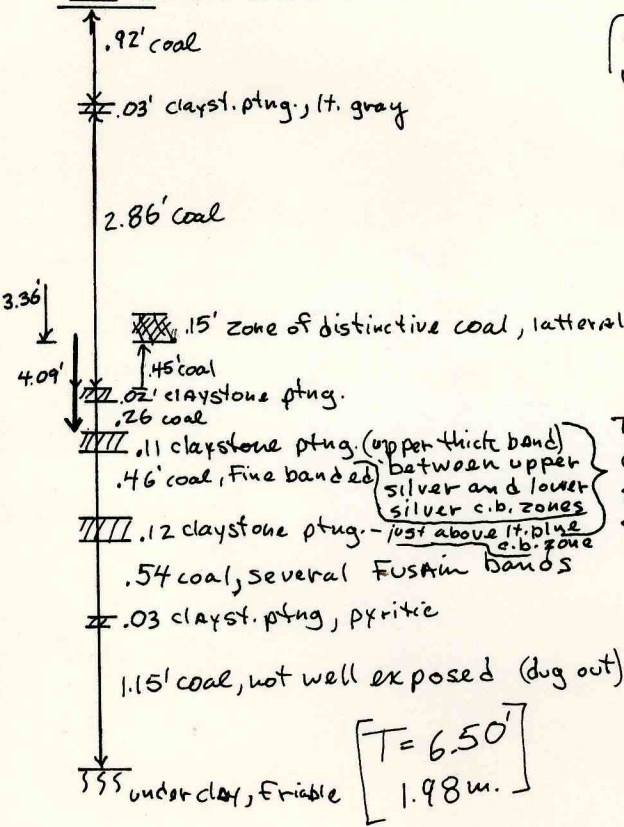 .92' coal
.03' clayst. ptng., lt. gray
2.86' coal
3.36'
.15' zone of distinctive coal, latteral
.45' coal
4.09'
.02' claystone ptng.
.26 coal
.11 claystone ptng. (upper thick band)
.46' coal, Fine banded
between upper
silver and lower
silver c.b. zones
.12 claystone ptng. - just above lt. blue
c.b. zone
.54 coal, several Fusain bands
.03 clayst. ptng, pyritic
1.15' coal, not well exposed (dug out)
T = 6.50'
1.98 m.
underclay, Friable